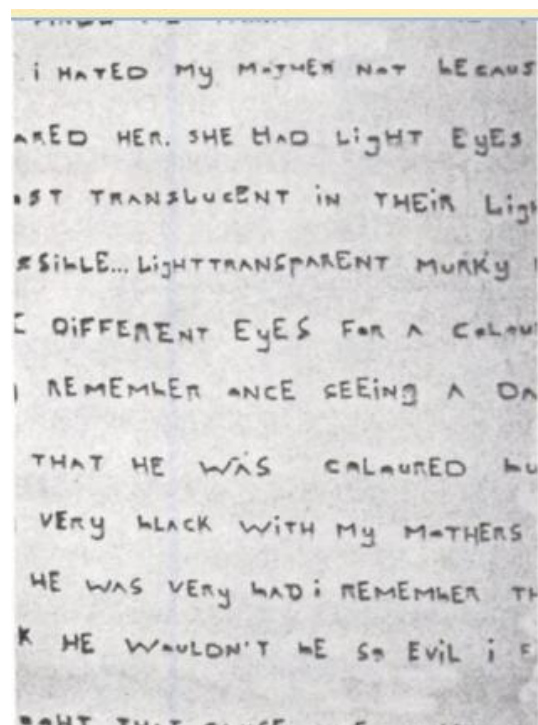 i HATED My MOTHER NOT bECAUS
ARED HER. SHE HAD LigHT EyES
OST TRANSLUCENT iN THEiR Ligh
SSibLE... LigHTTRANSPARENT MURKy
DiFFERENT EyES FOR A COLOU
REMEMbER ONCE SEEiNg A DA
THAT HE WAS COLOURED bu
VERy bLACK WiTH My MOTHERS
HE WAS VERy bAD i REMEMbER TH
K HE WOULDN'T bE SO EViL i F